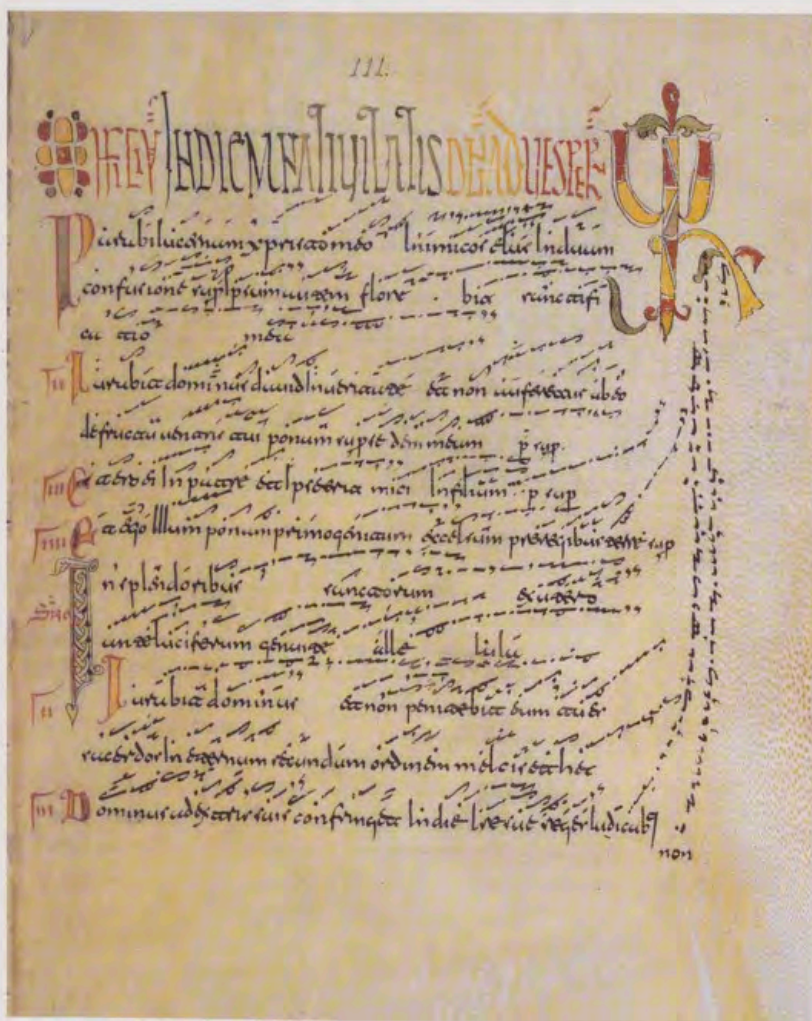 III.
IN DIEM NATIVITATIS DNI AD VESPER
Parabi lucernam xpisto meo Inimicos eius Induam
confusione sup Ipsum autem flore bia sanctifi
catio mea
II Iurabit dominus david In veritate et non ab eo
de fructu ventris tui ponam super sedem meam p sup
III Et ero ei In patre et Ipse erit mici In filium p sup
IIII Et ego Illum ponam primogenitum excelsum pre regibus terre sup
In splendoribus sanctorum ex utero
ante luciferum genui te alle luia
II Iurabit dominus et non penitebit eum tu es
sacerdos In eternum secundum ordinem melcisethec
III Dominus a dextris tuis confringet In die Ire sue reges Iudicab
non